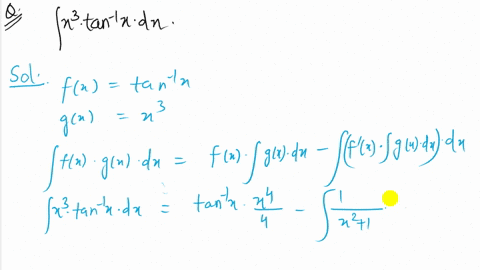 Q. ∫x³·tan⁻¹x·dx.
Sol.
f(x) = tan⁻¹x
g(x) = x³
∫f(x)·g(x)·dx = f(x)·∫g(x)·dx − ∫(f'(x)·∫g(x)·dx)·dx
∫x³·tan⁻¹x·dx = tan⁻¹x·x⁴/4 − ∫1/x²+1